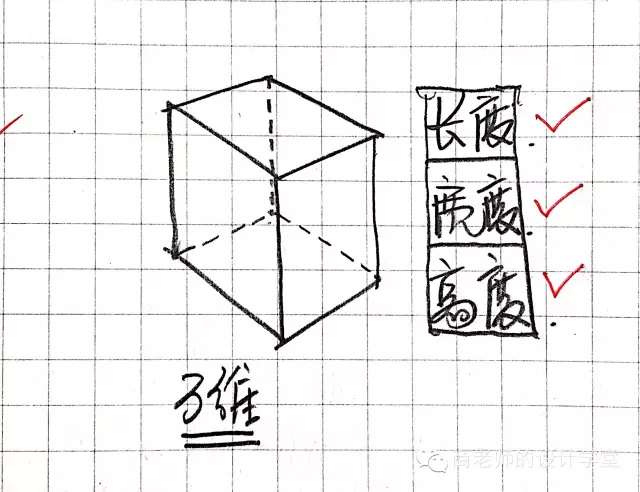 长度.
宽度.
高度.
3维
商老师的设计学堂